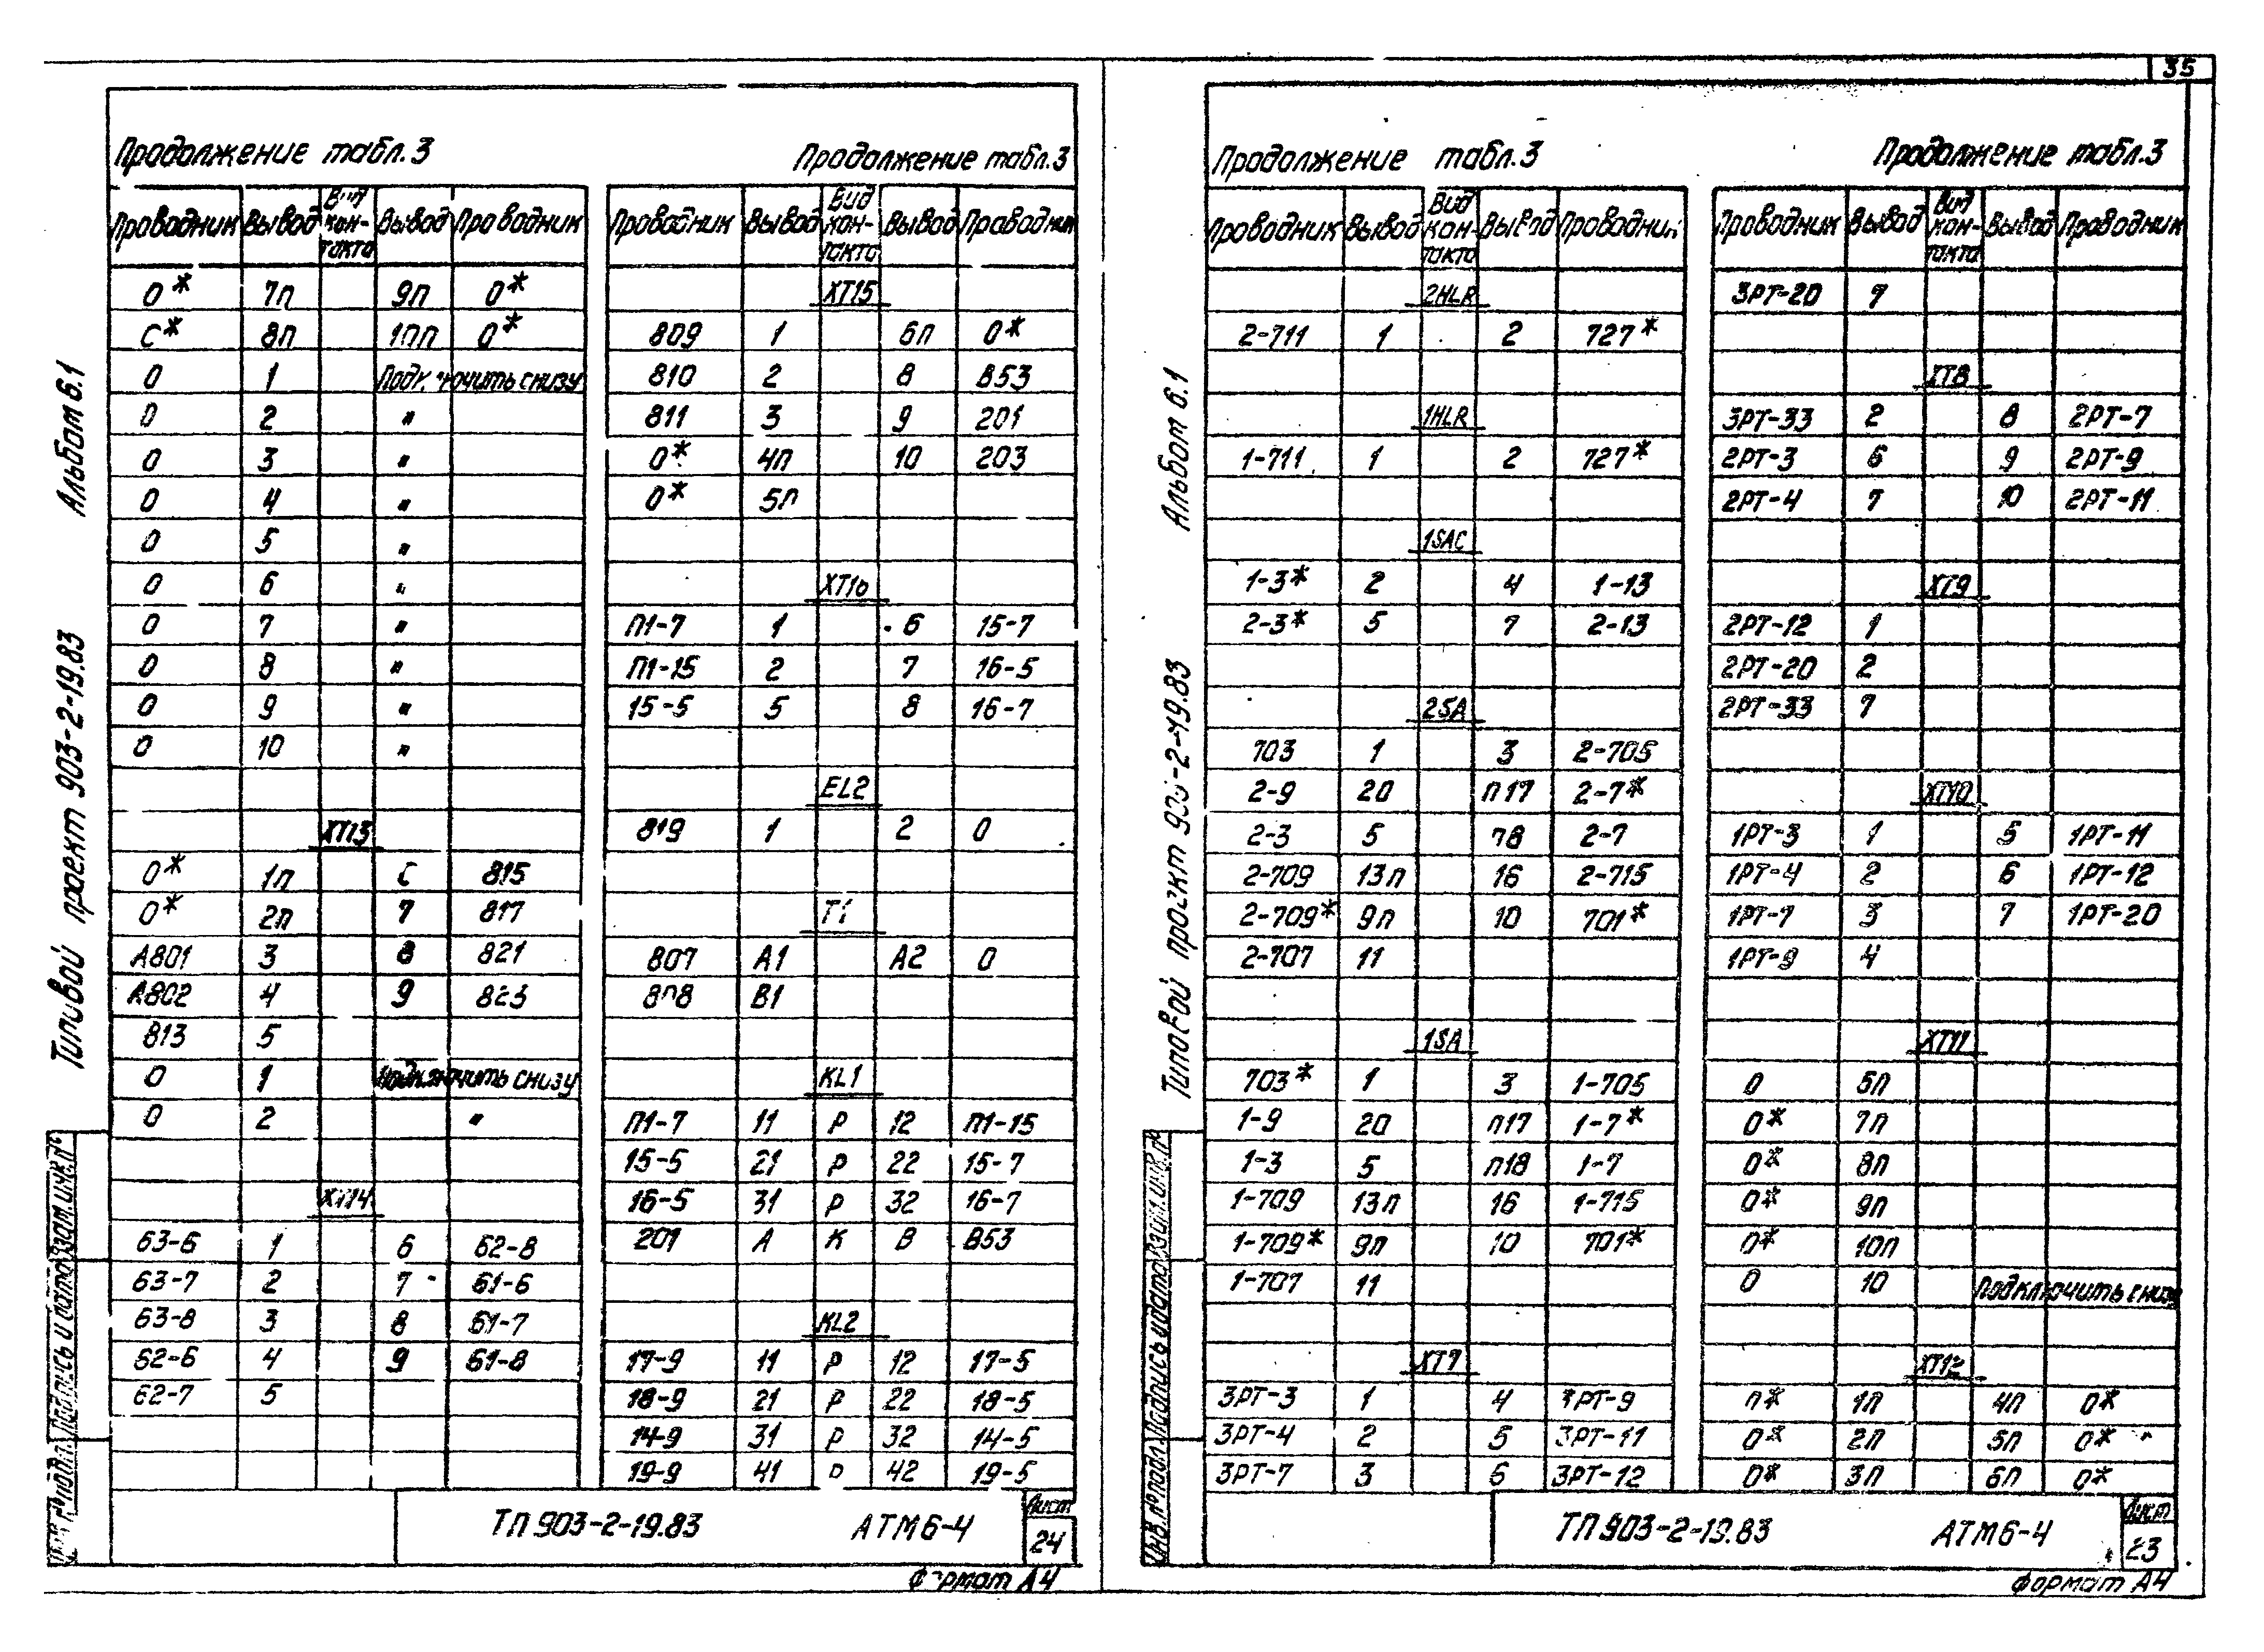 35
Альбом 6.1
Типовой проект 903-2-19.83
Продолжение табл.3
Проводник Вывод Вид кон-такта Вывод Проводник
0* 7п 9п 0*
С* 8п 10п 0*
0 1 Подключить снизу
0 2 "
0 3 "
0 4 "
0 5 "
0 6 "
0 7 "
0 8 "
0 9 "
0 10 "
XT13
0* 1п 815
0* 2п 7 817
А801 3 8 821
А802 4 9 823
813 5
0 1 Подключить снизу
0 2 "
XT14
63-6 1 6 62-8
63-7 2 7 61-6
63-8 3 8 61-7
62-6 4 9 61-8
62-7 5
Продолжение табл.3
Проводник Вывод Вид кон-такта Вывод Проводник
XT15
809 1 6п 0*
810 2 8 В53
811 3 9 201
0* 4п 10 203
0* 5п
XT16
П1-7 1 6 15-7
П1-15 2 7 16-5
15-5 5 8 16-7
EL2
819 1 2 0
T1
807 А1 А2 0
808 В1
KL1
П1-7 11 Р 12 П1-15
15-5 21 Р 22 15-7
16-5 31 Р 32 16-7
201 А К В В53
KL2
17-9 11 Р 12 17-5
18-9 21 Р 22 18-5
14-9 31 Р 32 14-5
19-9 41 Р 42 19-5
Взам.инв.№
Подпись и дата
Инв.№подл.
ТП 903-2-19.83 АТМ6-4
Лист
24
Формат А4
Альбом 6.1
Типовой проект 903-2-19.83
Продолжение табл.3
Проводник Вывод Вид кон-такта Вывод Проводник
2HLR
2-711 1 2 727*
1HLR
1-711 1 2 727*
1SAC
1-3* 2 4 1-13
2-3* 5 7 2-13
2SA
703 1 3 2-705
2-9 20 П17 2-7*
2-3 5 2-7
2-709 13п 16 2-715
2-709* 9п 10 701*
2-707 11
1SA
703* 1 3 1-705
1-9 20 П17 1-7*
1-3 5 П18 1-7
1-709 13п 16 1-715
1-709* 9п 10 701*
1-707 11
XT7
3РТ-3 1 4 3РТ-9
3РТ-4 2 5 3РТ-11
3РТ-7 3 6 3РТ-12
Продолжение табл.3
Проводник Вывод Вид кон-такта Вывод Проводник
3РТ-20 7
XT8
3РТ-33 2 8 2РТ-7
2РТ-3 6 9 2РТ-9
2РТ-4 7 10 2РТ-11
XT9
2РТ-12 1
2РТ-20 2
2РТ-33 7
XT10
1РТ-3 1 5 1РТ-11
1РТ-4 2 6 1РТ-12
1РТ-7 3 7 1РТ-20
1РТ-9 4
XT11
0 5п
0* 7п
0* 8п
0* 9п
0* 10п
0 10 Подключить снизу
XT12
п* 1п 4п 0*
0* 2п 5п 0*
0* 3п 6п 0*
Взам.инв.№
Подпись и дата
Инв.№подл.
ТП 903-2-19.83 АТМ6-4
Лист
23
Формат А4